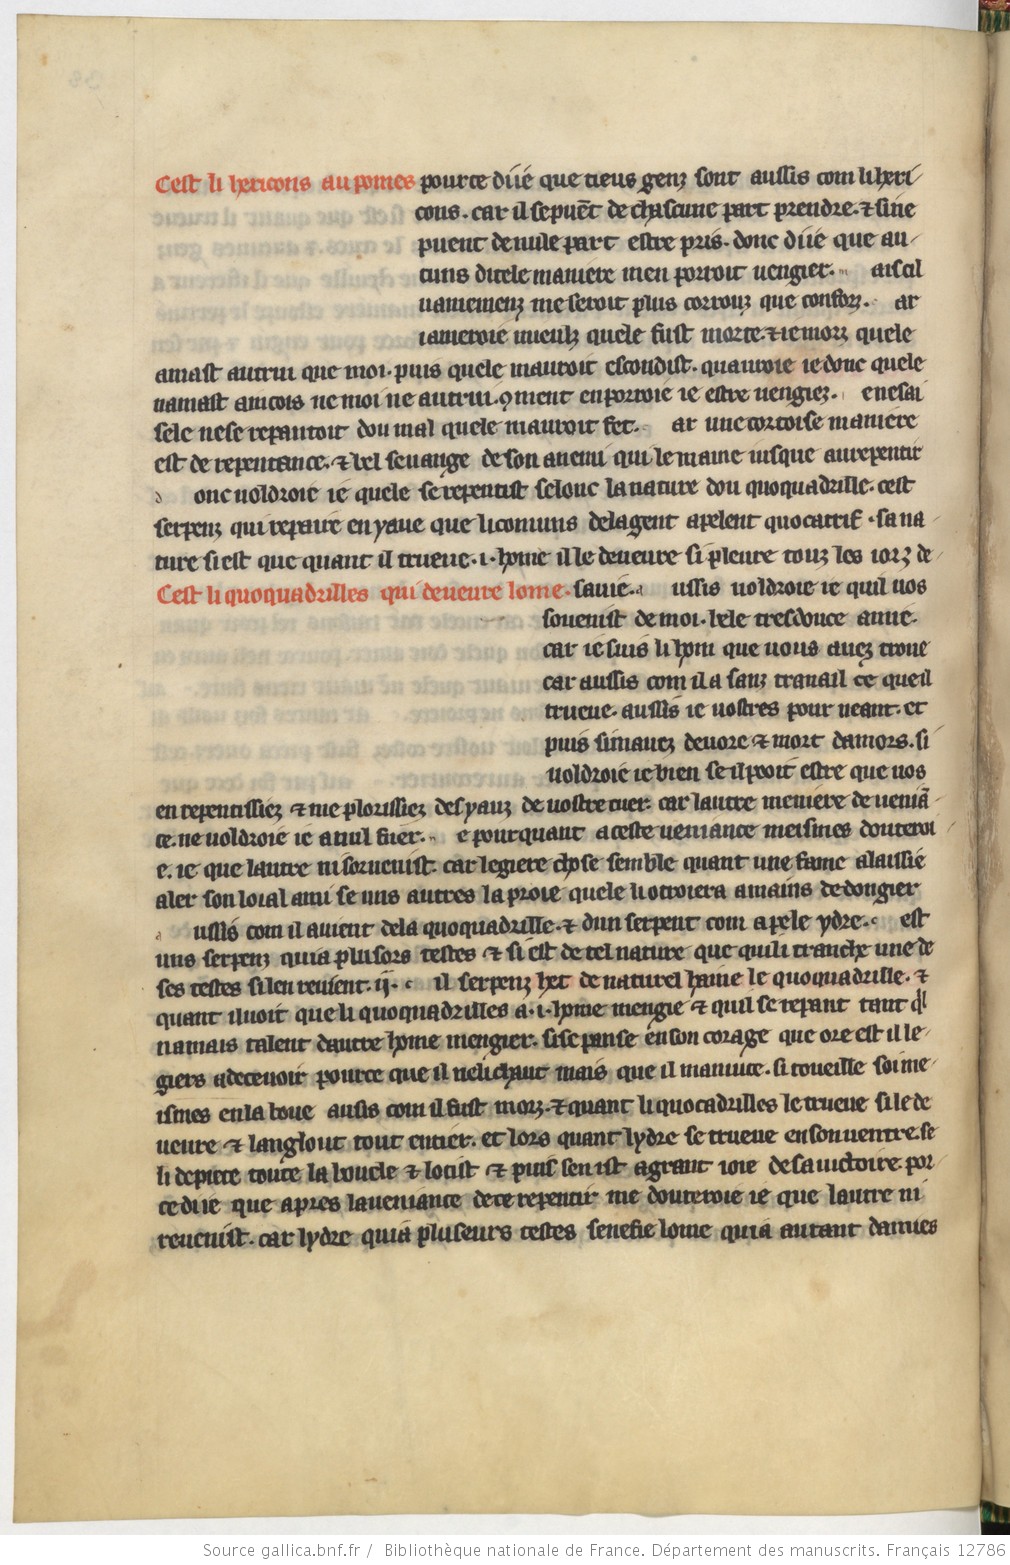 Cest li hericons au pomes pource diie que tieus genz sont aussis com li heri
cons. car il se puet de chascune part prendre. & si ne
puent de nule part estre pris. donc diie que au
cuns ditele maniere men porroit uengier. ais cil
uaniemenz me seroit plus corrouz que confors. ar
iameroie mieulz quele fust morte. & ie morz quele
amast autrui que moi. puis quele mauroit escondist. quauroie ie donc quele
namast ancois ne moi ne autrui. ꝯment en porroie ie estre uengiez. e ne sai
sele ne se repantoit dou mal quele mauroit fet. ar une tortoise maniere
est de repentance. & bel se uange de son anemi qui le maine iusque au repentir
d onc uoldroie ie quele se repentist selonc la nature dou quoquadrille. cest
serpenz qui repaire en yaue que li comuns de la gent apelent quocatrif. sa na
ture si est que quant il trueue .i. home il le deueure si pleure touz les iorz de
Cest li quoquadrilles qui deueure lome. sa uie. a ussis uoldroie ie quil uos
souenist de moi. bele tres douce amie.
car ie suis li hom que uous auez troue
car aussis com il a sanz trauail ce queil
trueue. aussis ie uostres pour neant. et
puis si mauez deuore & mort damors. si
uoldroie ie bien se il pooit estre que uos
en repentissiez & me plorissiez des yauz de uostre cuer. car lautre meniere de uenia
ce. ne uoldroie ie a nul fuer. e pourquant a ceste ueniance meismes douteroi
e. ie que lautre ni soruenist. car legiere chose semble quant une fame a laissie
aler son loial ami se uns autres la proie quele li otroiera a mains de dongier
a ussis com il auient de la quoquadrille. & dun serpent com apele ydre. c est
uns serpenz qui a plusors testes & si est de tel nature que qui li tranche une de
ses testes si len reuient .ij. c il serpenz het de naturel haine le quoquadrille. &
quant il uoit que li quoquadrilles a .i. home mengie & quil se repant tant ql
na mais talent dautre home mengier. si se panse en son corage que ore est il le
giers a deceuoir pource que il ne li chaut mais que il maniuce. si toueille soi me
ismes en la boue ausis com il fust morz. & quant li quocadrilles le trueue si le de
ueure & langlout tout entier. et lors quant lydre se trueue en son uentre. se
li depiece toute la bouele & locist & puis sen ist a grant ioie de sa uictoire. por
ce diie que apres la ueniance de ce repentir me douteroie ie que lautre ni
reuenist. car lydre qui a pluseurs testes senefie lome qui a autant damies
Source gallica.bnf.fr / Bibliothèque nationale de France. Département des manuscrits. Français 12786